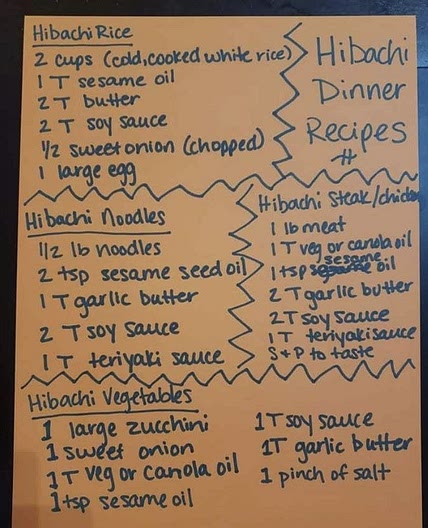 Hibachi Rice
2 cups (cold, cooked white rice)
1 T sesame oil
2 T butter
2 T soy sauce
1/2 sweet onion (chopped)
1 large egg
Hibachi
Dinner
Recipes
#
Hibachi Noodles
1/2 lb noodles
2 tsp sesame seed oil
1 T garlic butter
2 T soy sauce
1 T teriyaki sauce
Hibachi Steak/chicken
1 lb meat
1 T veg or canola oil
sesame
1 tsp oil
2 T garlic butter
2 T soy sauce
1 T teriyaki sauce
S + P to taste
Hibachi Vegetables
1 large zucchini
1 sweet onion
1 T veg or canola oil
1 tsp sesame oil
1 T soy sauce
1T garlic butter
1 pinch of salt